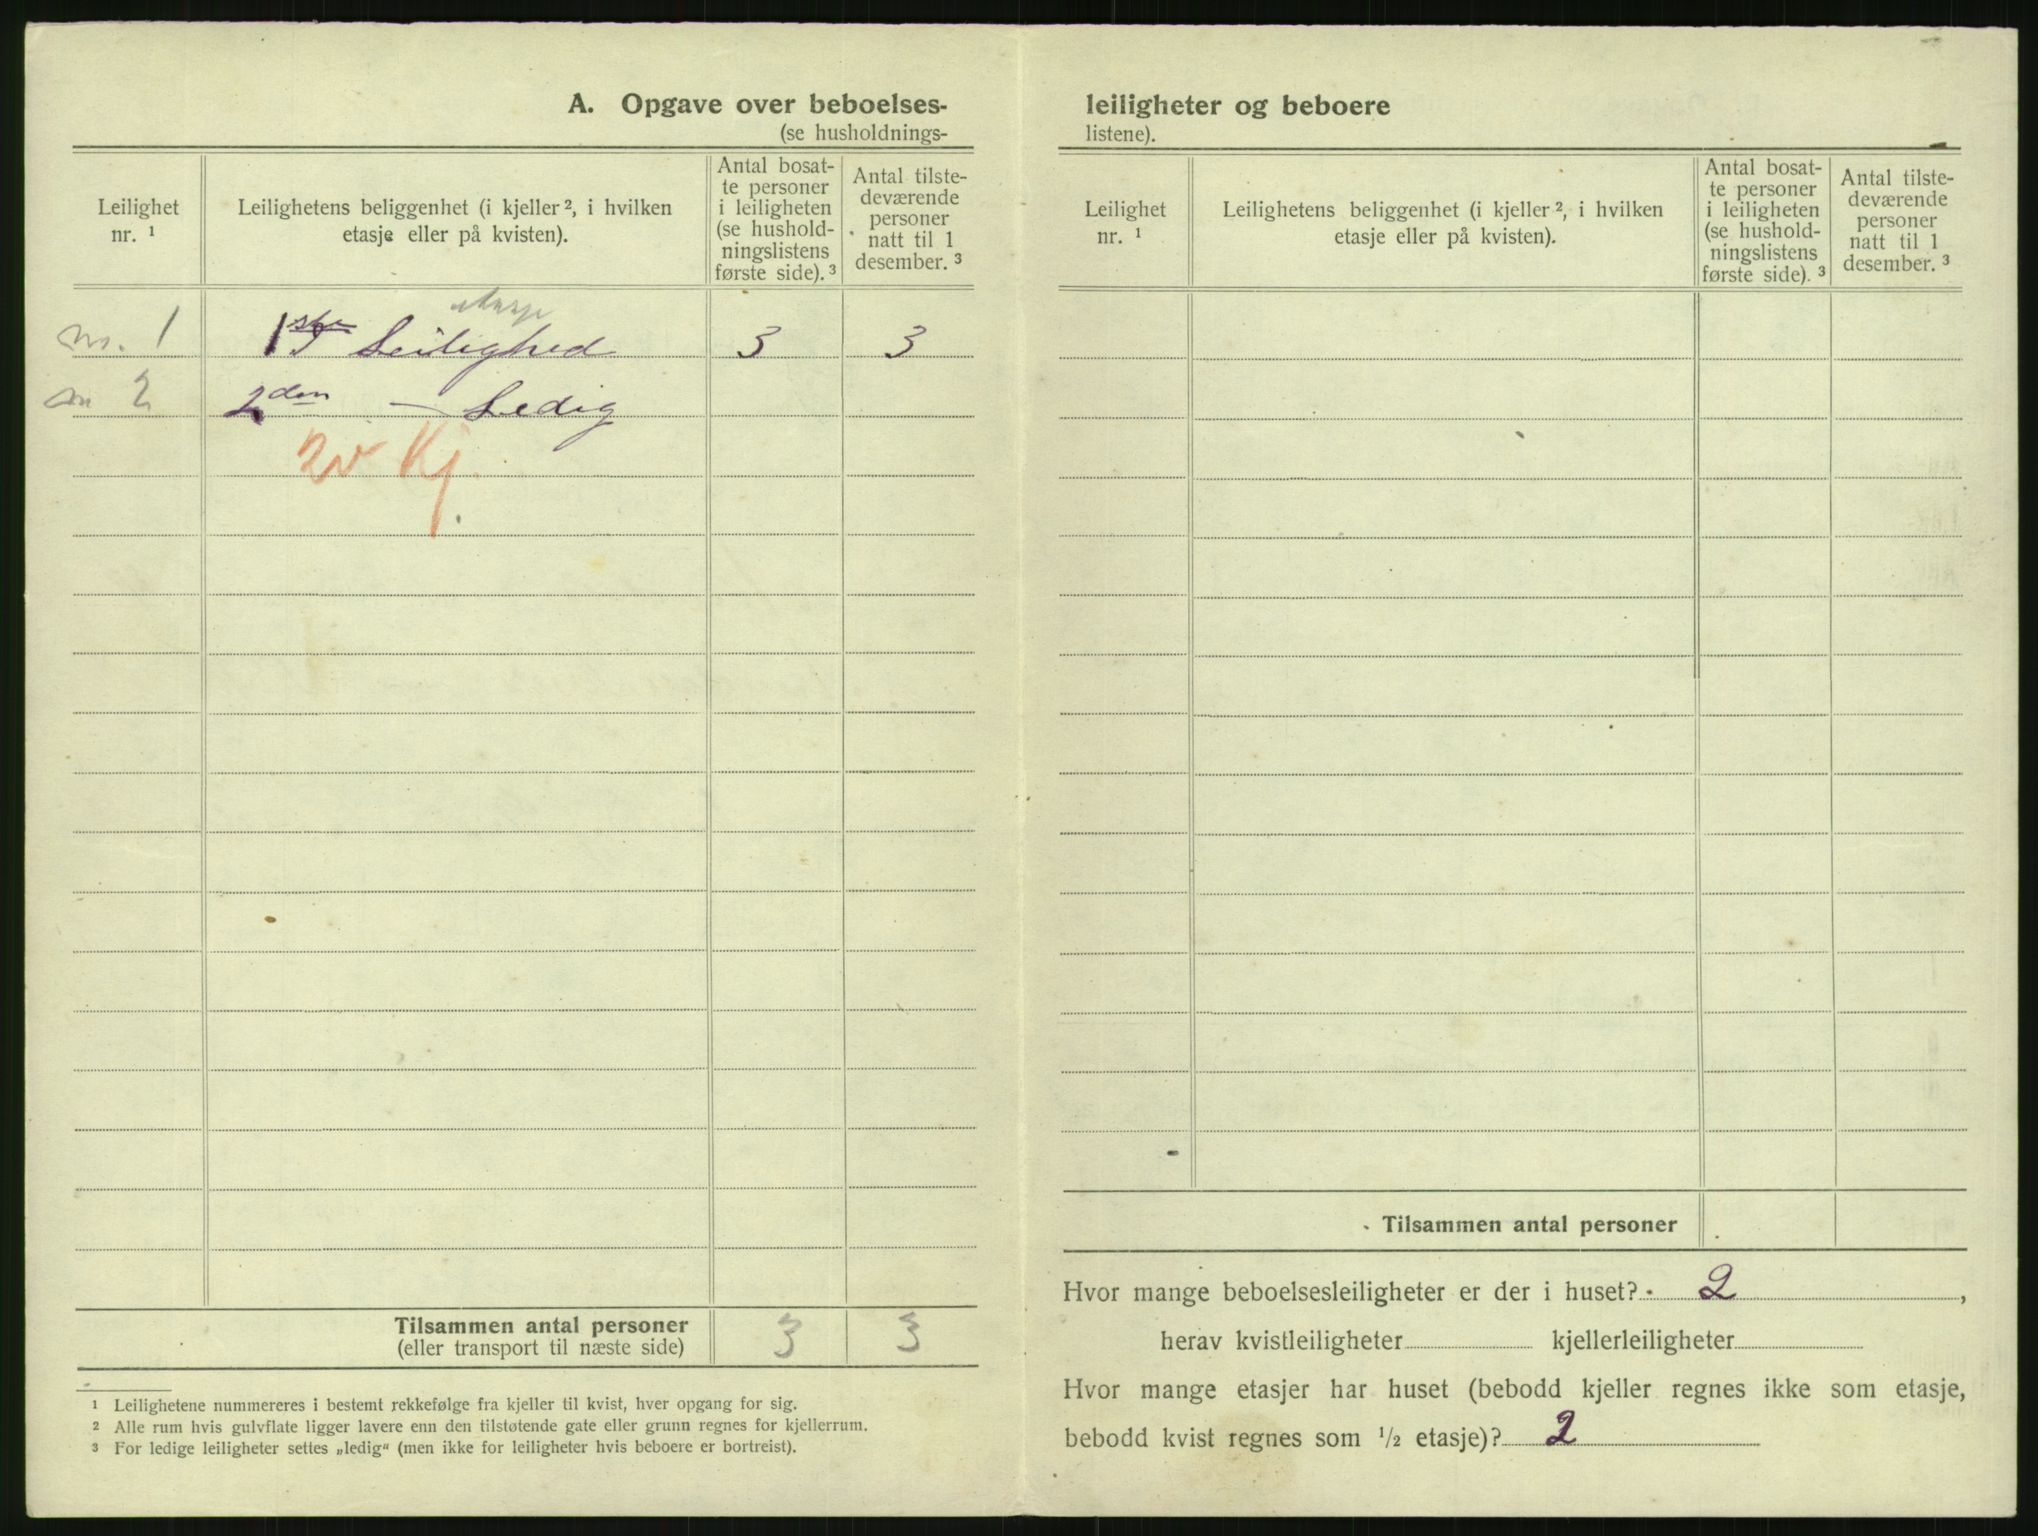 A. Opgave over beboelses-
(se husholdnings-
Leilighet
nr. ¹
Leilighetens beliggenhet (i kjeller ², i hvilken
etasje eller på kvisten).
Antal bosat-
te personer
i leiligheten
(se hushold-
ningslistens
første side). ³
Antal tilste-
deværende
personer
natt til 1
desember. ³
etasje
nr. 1 1ste Leilighed 3 3
2 2den — Ledig
Kj.
Tilsammen antal personer 3 3
(eller transport til næste side)
¹ Leilighetene nummereres i bestemt rekkefølge fra kjeller til kvist, hver opgang for sig.
² Alle rum hvis gulvflate ligger lavere enn den tilstøtende gate eller grunn regnes for kjellerrum.
³ For ledige leiligheter settes „ledig“ (men ikke for leiligheter hvis beboere er bortreist).
leiligheter og beboere
listene).
Leilighet
nr. ¹
Leilighetens beliggenhet (i kjeller ², i hvilken
etasje eller på kvisten).
Antal bosat-
te personer
i leiligheten
(se hushold-
ningslistens
første side). ³
Antal tilste-
deværende
personer
natt til 1
desember. ³
Tilsammen antal personer
Hvor mange beboelsesleiligheter er der i huset? 2,
herav kvistleiligheter kjellerleiligheter
Hvor mange etasjer har huset (bebodd kjeller regnes ikke som etasje,
bebodd kvist regnes som ½ etasje)? 2